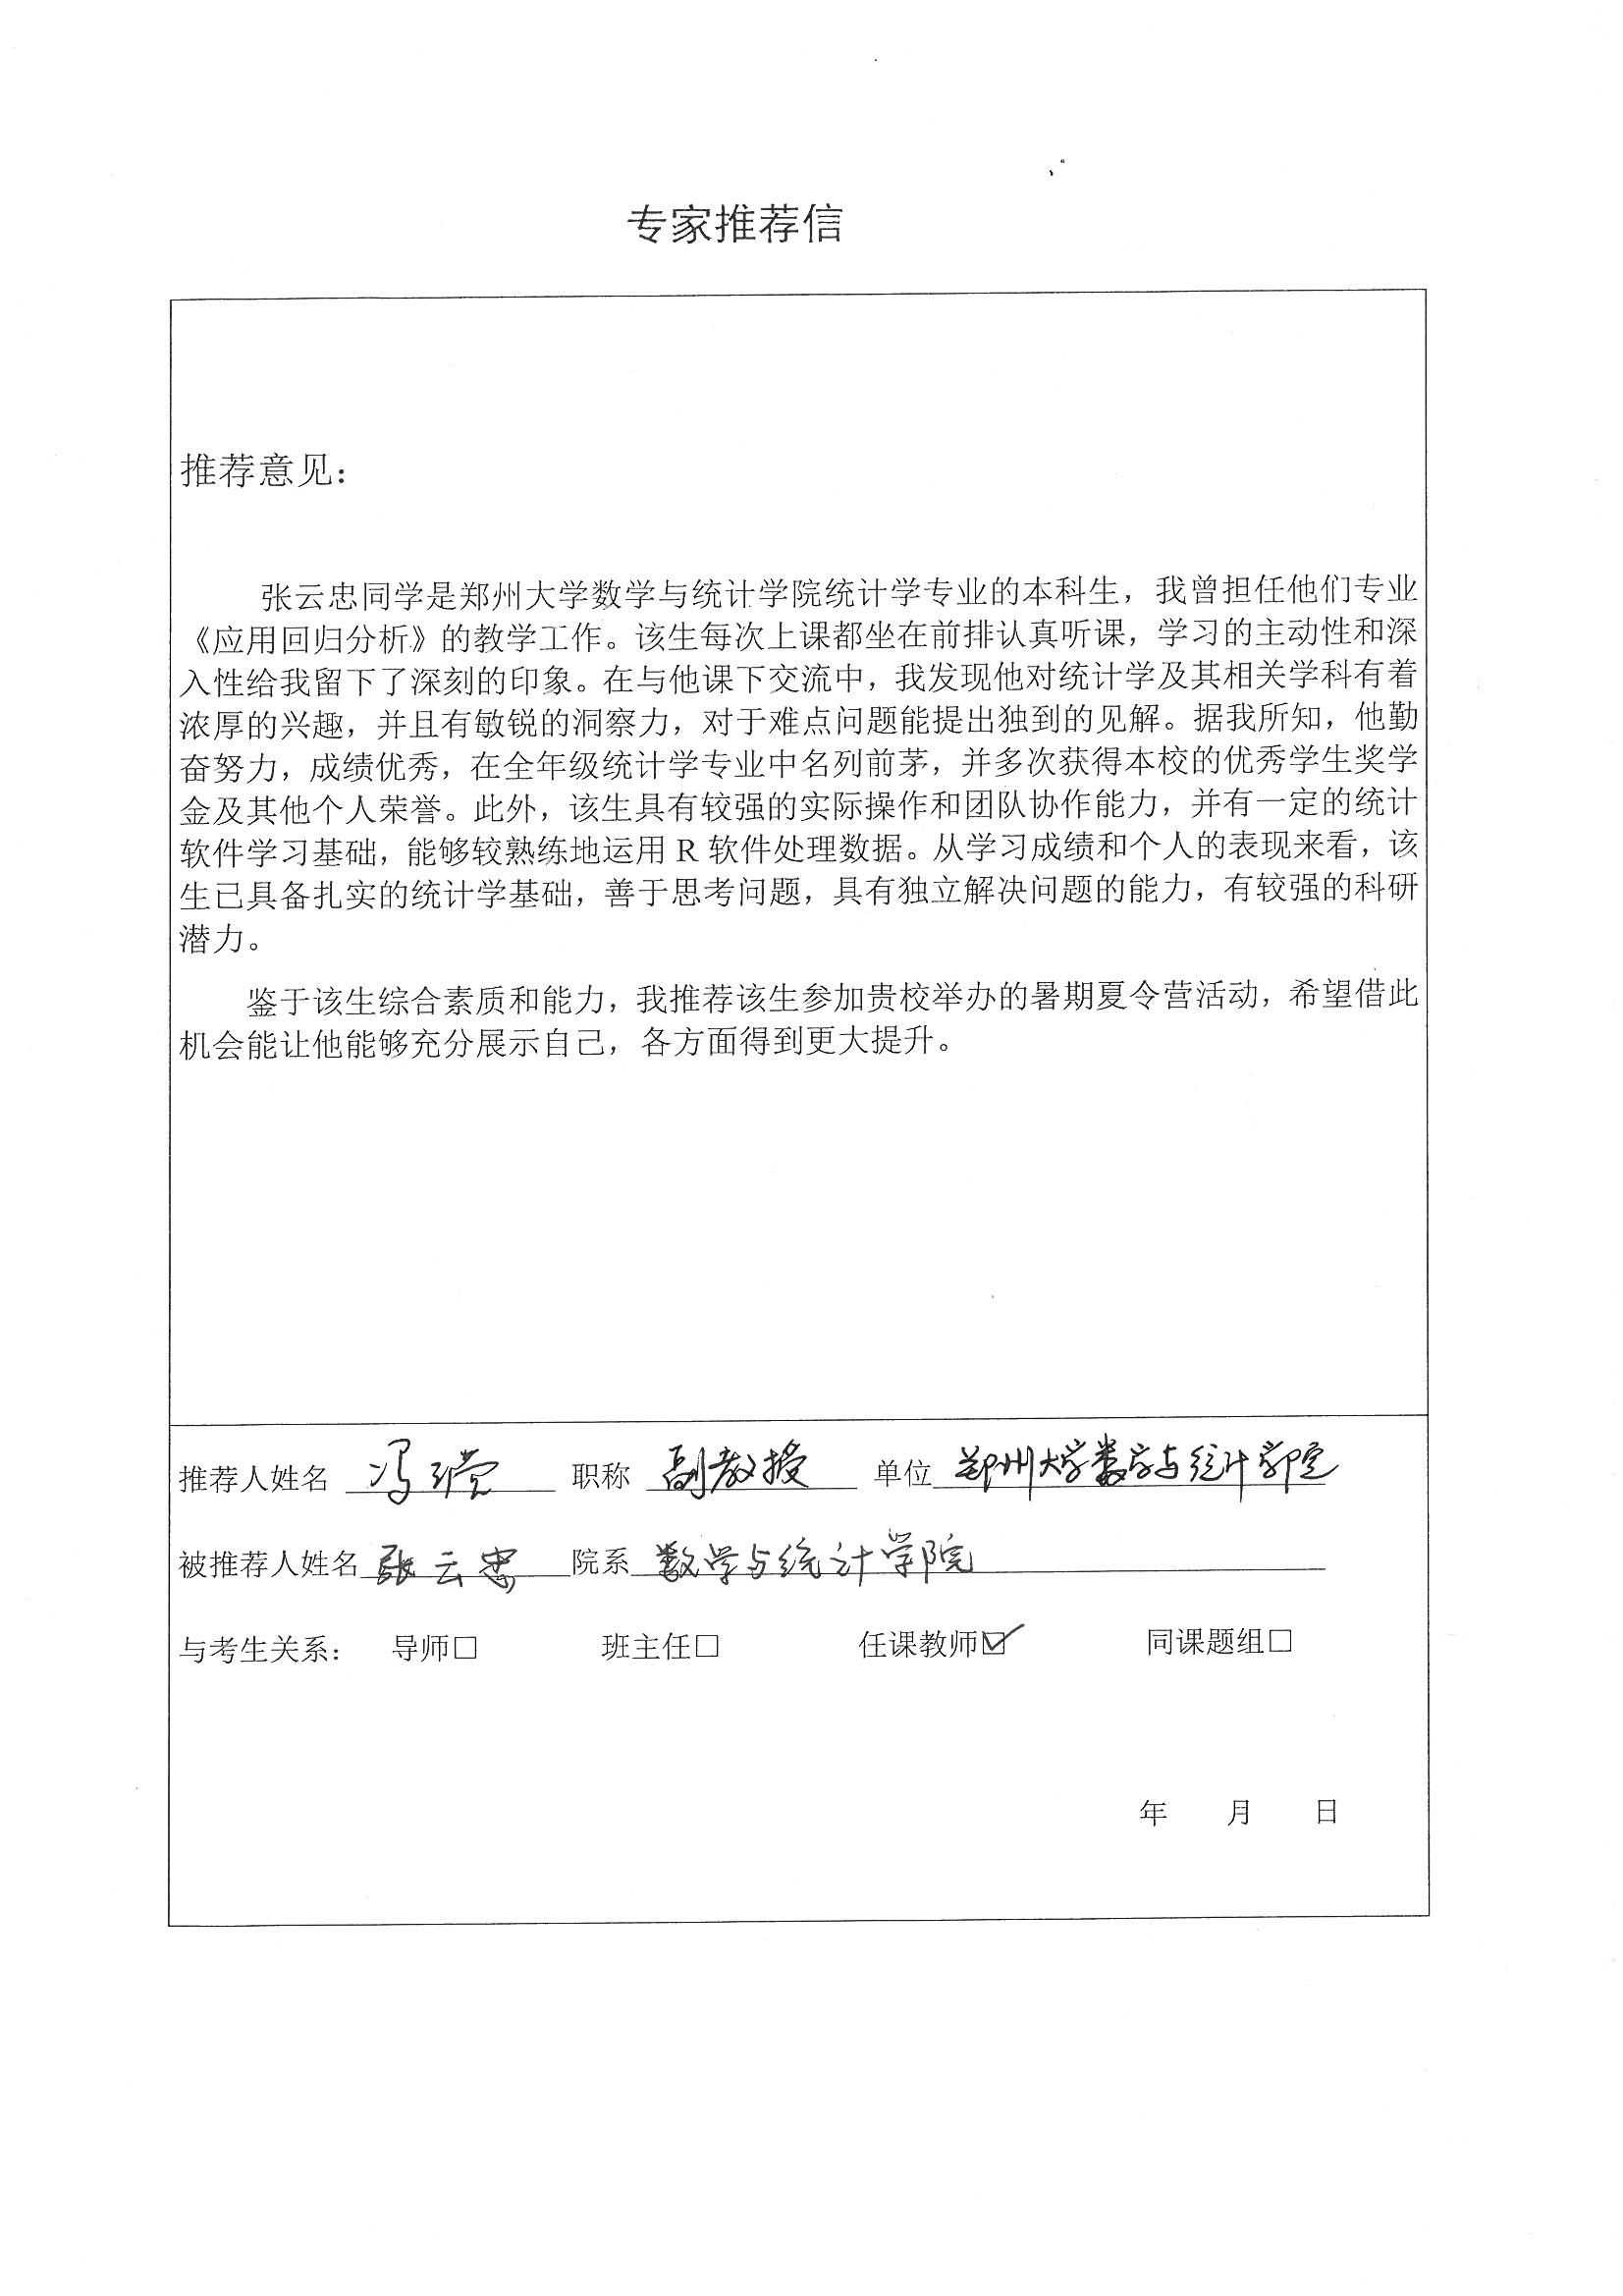 专家推荐信
推荐意见：
张云忠同学是郑州大学数学与统计学院统计学专业的本科生，我曾担任他们专业
《应用回归分析》的教学工作。该生每次上课都坐在前排认真听课，学习的主动性和深
入性给我留下了深刻的印象。在与他课下交流中，我发现他对统计学及其相关学科有着
浓厚的兴趣，并且有敏锐的洞察力，对于难点问题能提出独到的见解。据我所知，他勤
奋努力，成绩优秀，在全年级统计学专业中名列前茅，并多次获得本校的优秀学生奖学
金及其他个人荣誉。此外，该生具有较强的实际操作和团队协作能力，并有一定的统计
软件学习基础，能够较熟练地运用 R 软件处理数据。从学习成绩和个人的表现来看，该
生已具备扎实的统计学基础，善于思考问题，具有独立解决问题的能力，有较强的科研
潜力。
鉴于该生综合素质和能力，我推荐该生参加贵校举办的暑期夏令营活动，希望借此
机会能让他能够充分展示自己，各方面得到更大提升。
推荐人姓名 冯 职称 副教授 单位 郑州大学数学与统计学院
被推荐人姓名 张云忠 院系 数学与统计学院
与考生关系： 导师□ 班主任□ 任课教师☑ 同课题组□
年 月 日